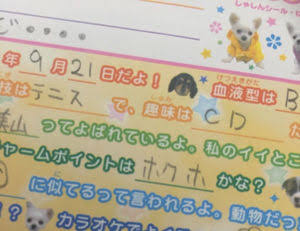 しゃしんシール・
ど
年 9月21日だよ！
けつえきがた
血液型は B
技は テニス で、趣味は CD
しゅみ
美山 ってよばれているよ。私のイイとこ
チャームポイントは ホクホ かな？
に似てるって言われるよ。動物だっ
？ カラオケでよく